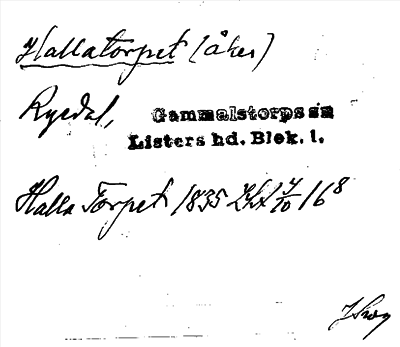 Hallatorpet (åker)
Ryedal, Gammalstorps sn
Listers hd. Blek. l.
Halla Torpet 1835 16⁸